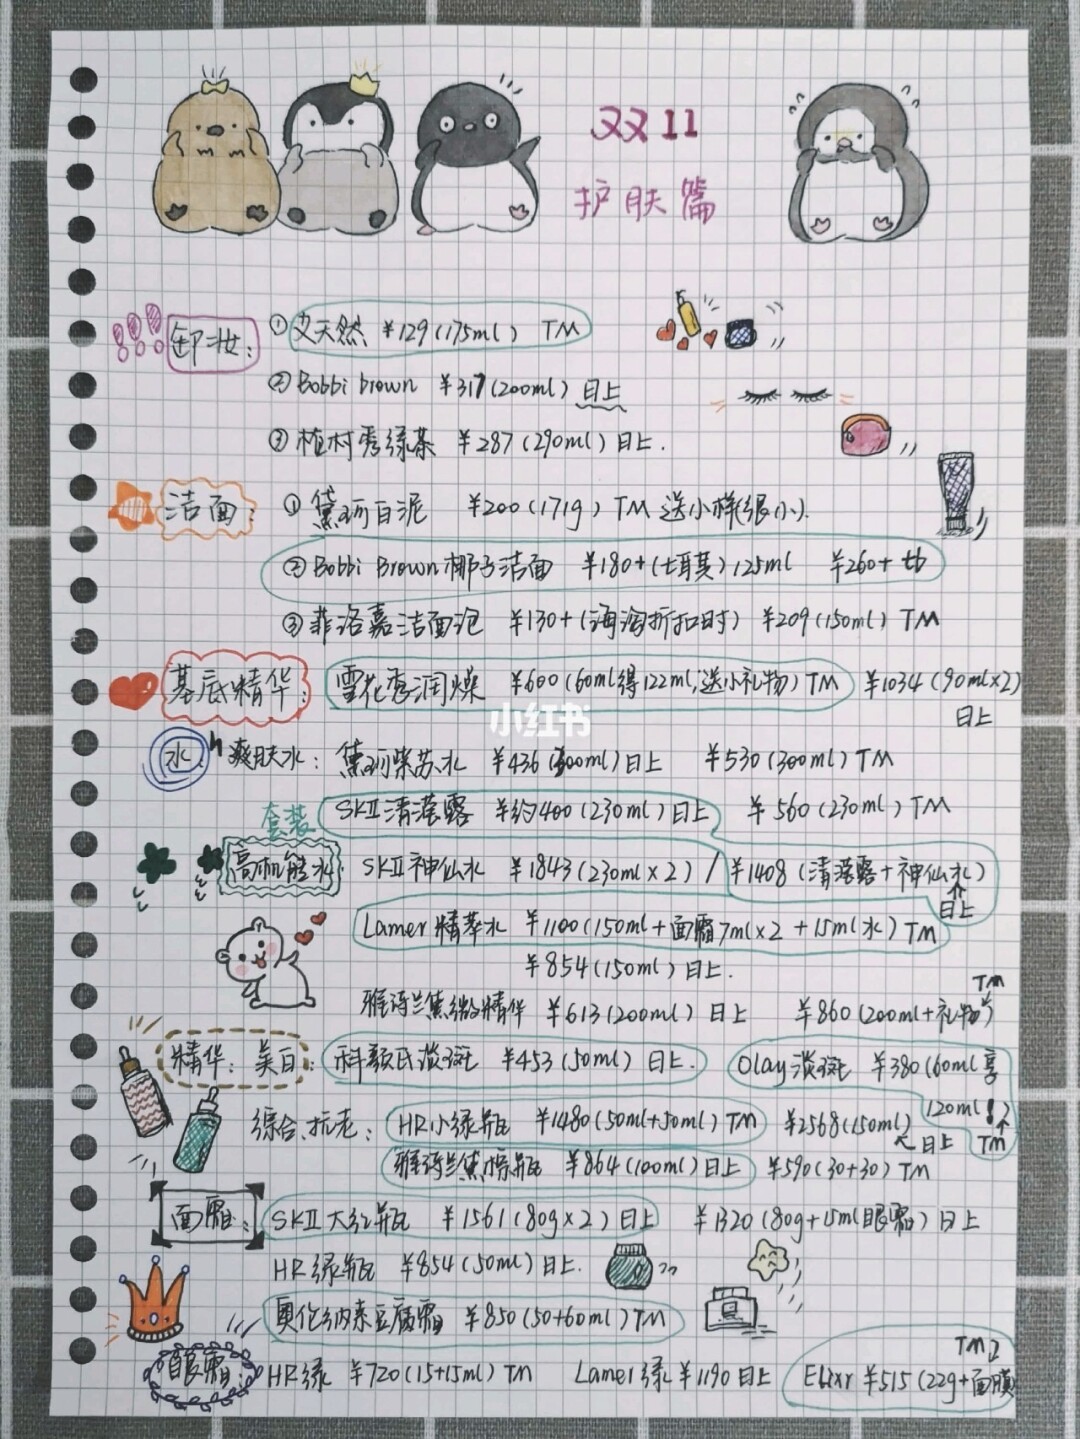 双11
护肤篇
卸妆：①艾天然 ¥129(175ml) TM
②Bobbi brown ¥317(200ml)日上
③植村秀绿茶 ¥287(290ml)日上.
洁面：①黛珂白泥 ¥200(171g) TM 送小样(很小).
②Bobbi Brown椰子洁面 ¥180+(土耳其)125ml ¥260+ tb
③菲洛嘉洁面泡 ¥130+(海淘折扣时) ¥209(150ml) TM
基底精华：雪花秀润燥 ¥600(60ml得122ml,送小礼物)TM ¥1034(90ml×2)
日上
小红书
水 爽肤水：黛珂紫苏水 ¥436(300ml)日上 ¥530(300ml)TM
SKII清滢露 ¥约400(230ml)日上 ¥560(230ml)TM
套装
高机能水 SKII神仙水 ¥1843(230ml×2) / ¥1408(清滢露+神仙水)
日上
Lamer精萃水 ¥1100(150ml+面霜7ml×2+15ml水)TM
¥854(150ml)日上.
TM
雅诗兰黛微精华 ¥613(200ml)日上 ¥860(200ml+礼物)
精华：美白：科颜氏淡斑 ¥453(50ml)日上. Olay淡斑 ¥380(60ml享
120ml!)
TM
综合、抗老：HR小绿瓶 ¥1480(50ml+50ml)TM ¥2568(150ml)
日上
雅诗兰黛棕瓶 ¥864(100ml)日上 ¥590(30+30)TM
面霜：SKII大红瓶 ¥1561(80g×2)日上 ¥1320(80g+15ml眼霜)日上
HR绿瓶 ¥854(50ml)日上.
奥伦纳素豆腐霜 ¥850(50+60ml)TM
TM
眼霜：HR绿 ¥720(15+15ml)TM Lamer绿¥1190日上 Elixir ¥515(22g+面膜